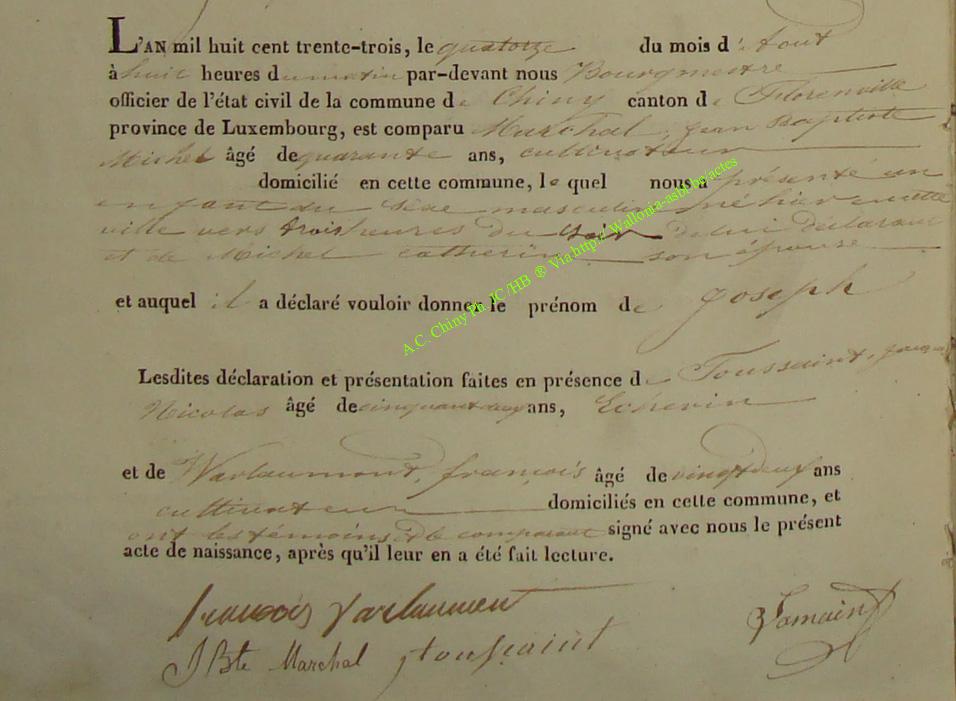 L'AN mil huit cent trente-trois, le quatorze du mois d'Aout
à huit heures du matin par-devant nous Bourgmestre
officier de l'état civil de la commune de Chiny canton de Florenville
province de Luxembourg, est comparu Marchal, jean Baptiste
Michel âgé de quarante ans, cultivateur
domicilié en cette commune, le quel nous a présenté un
enfant du sexe masculin né hier en cette
ville vers trois heures du soir de lui déclarant
et de Michel catherine son épouse
et auquel il a déclaré vouloir donner le prénom de joseph
Lesdites déclaration et présentation faites en présence de Toussaint,
Nicolas âgé de cinquante ans, Echevin
et de Warlaumont, françois âgé de vingt deux ans
cultivateur domiciliés en cette commune, et
ont les témoins et le comparant signé avec nous le présent
acte de naissance, après qu'il leur en a été fait lecture.
françois Varlaumont
J Bte Marchal j toussaint
A.C. Chiny Ph. JC /HB ® Via http:// Wallonia-asbl.be/actes